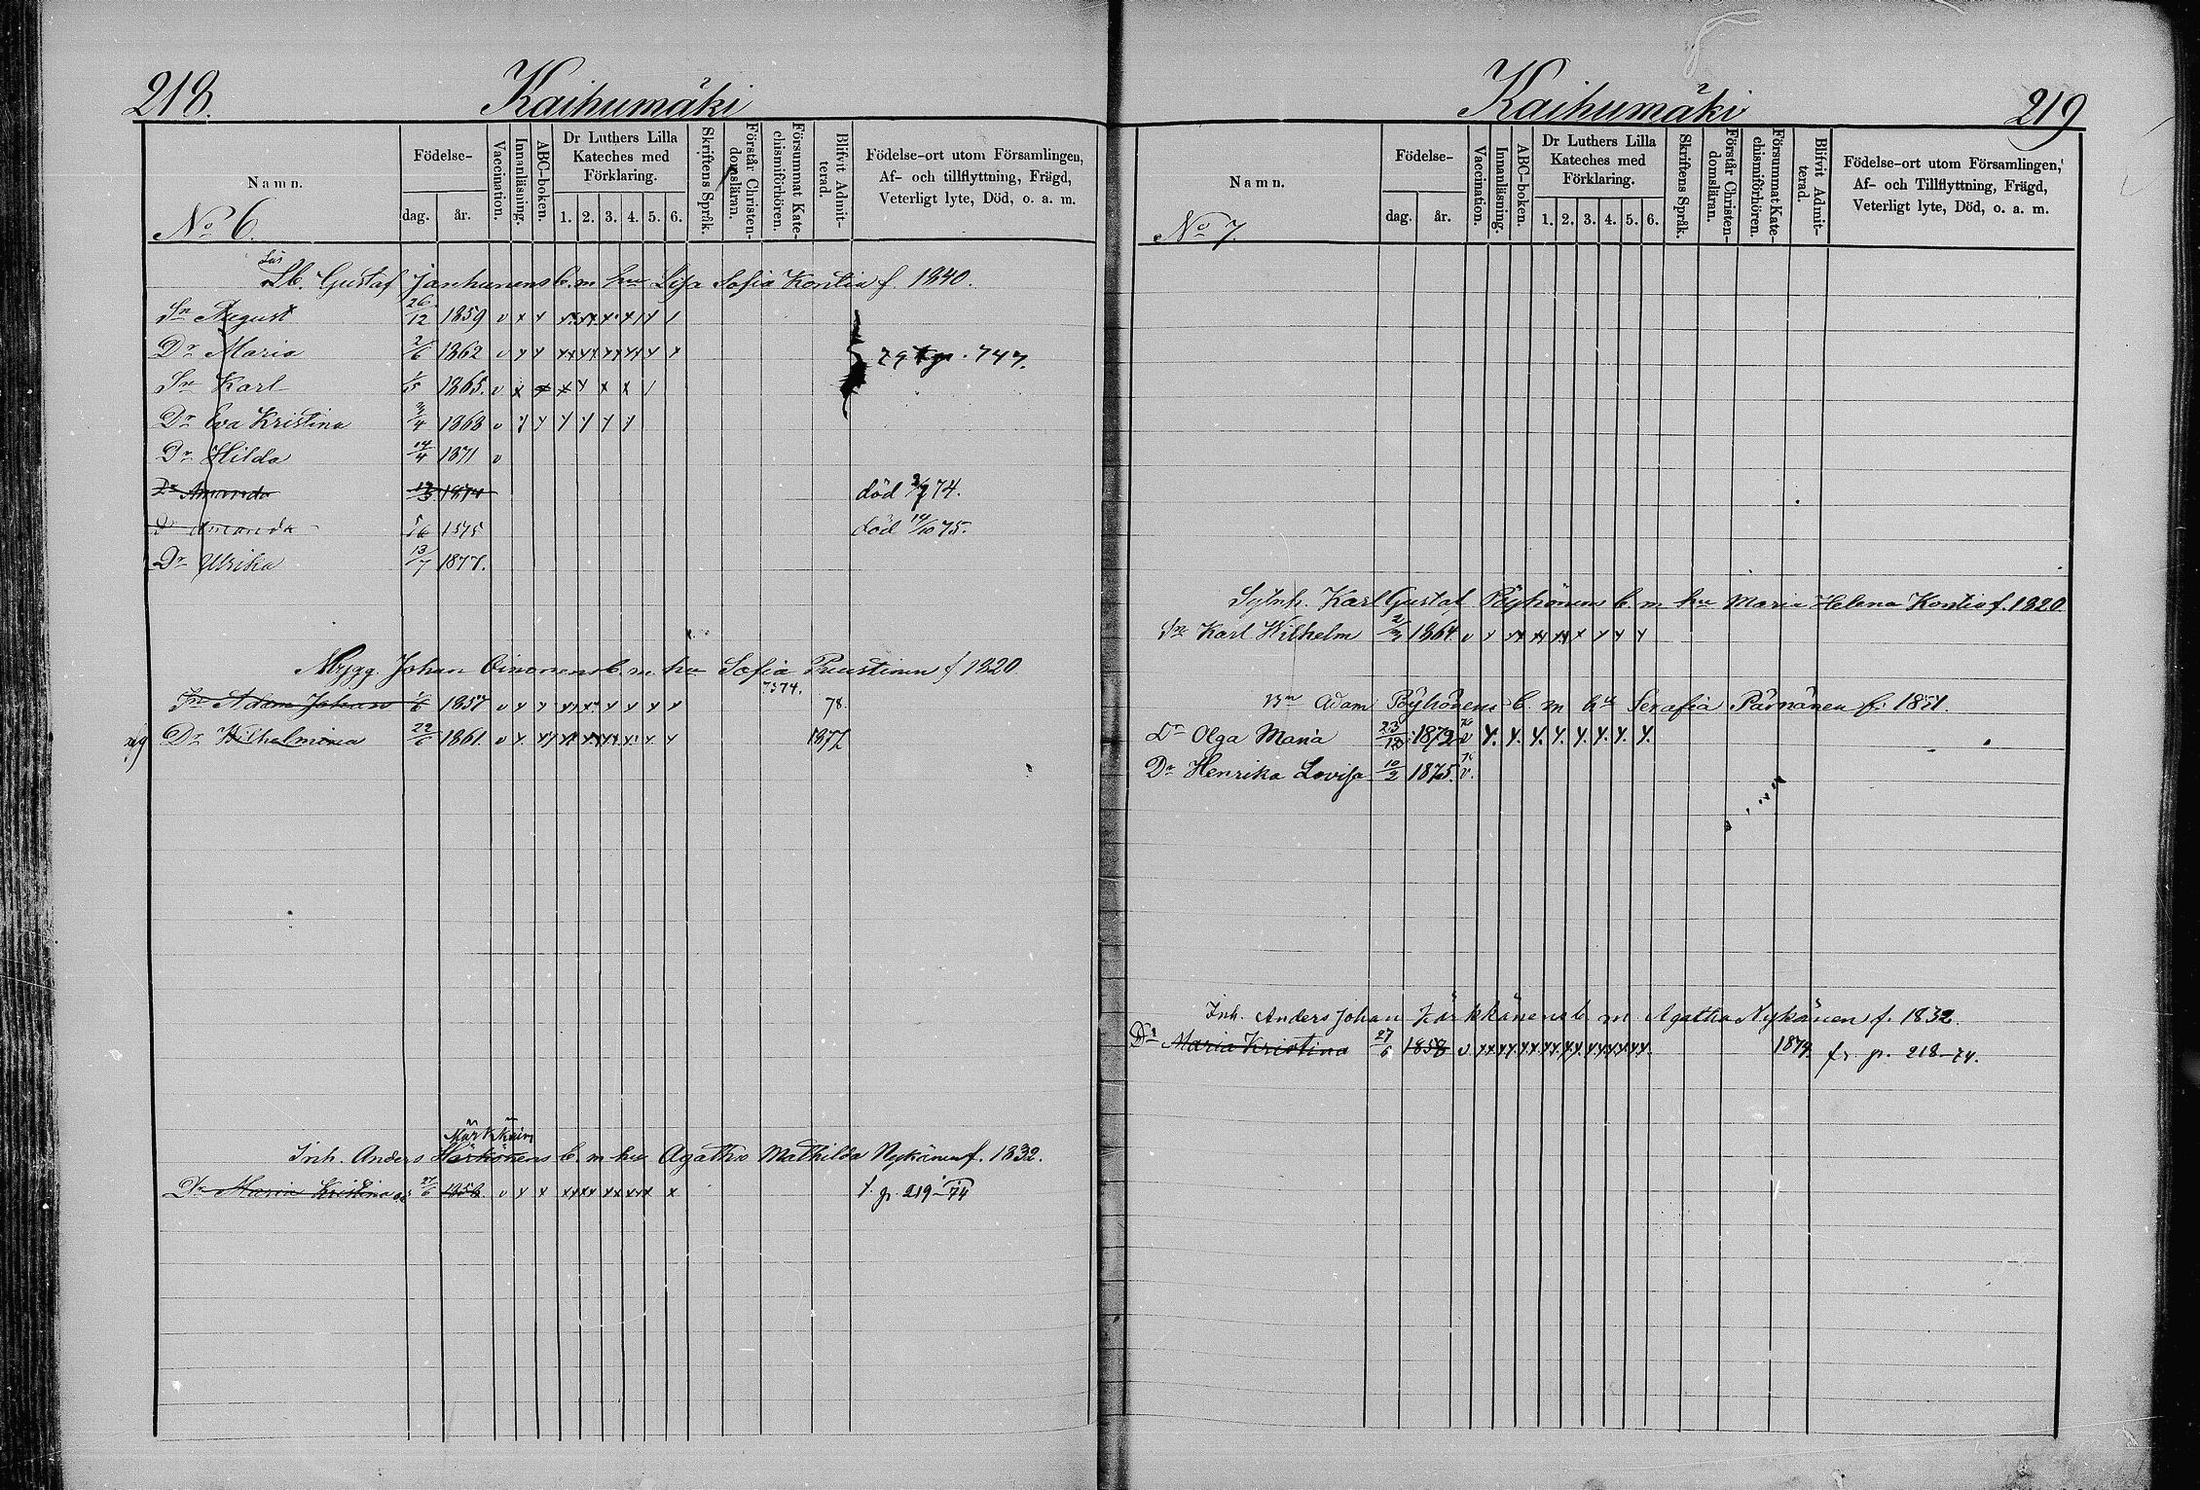 218.
Kaihumäki
Namn.
Födelse-
dag.
år.
Vaccination.
Innanläsning.
ABC-boken.
Dr Luthers Lilla
Kateches med
Förklaring.
1. 2. 3. 4. 5. 6.
Skriftens Språk.
Förstår Christen-
domsläran.
Försummat Kate-
chismiförhören.
Blifvit Admit-
terad.
Födelse-ort utom Församlingen,
Af- och tillflyttning, Frägd,
Veterligt lyte, Död, o. a. m.
No 6.
Lb. Gustaf Janhunens b. m. hu Lisa Sofia Kontia f. 1840.
Sn August 26/12 1859 v x x
Dr Maria 2/6 1862 v x x 79 747.
Sn Karl 1865. v x x x x x x
Dr Eva Kristina 3/4 1868 v y y y y y y
Dr Hilda 14/4 1871 v
Dr Amanda 1874 död 74.
Dr Amanda 1875 död 14/10 75.
Dr Ulrika 13/7 1877.
Johan Oinonens b. m. hu Sofia Puustinen f 1820
7374.
Sn Adam Johan 1857 v x x 78.
Dr Wilhelmina 22/6 1861. v 1877
Märkkäin
Inh. Anders Härkönens b. m hu Agatha Mathilda Nykänen f. 1832.
Dr Maria Kristina 27/6 1858 v x x t. p. 219-74
Kaihumäki
219
Namn.
Födelse-
dag.
år.
Vaccination.
Innanläsning.
ABC-boken
Dr Luthers Lilla
Kateches med
Förklaring.
1. 2. 3. 4. 5. 6.
Skriftens Språk.
Förstår Christen-
domsläran.
Försummat Kate-
chismiförhören.
Blifvit Admit-
terad.
Födelse-ort utom Församlingen,
Af- och Tillflyttning, Frägd,
Veterligt lyte, Död, o. a. m.
No 7.
Sytnh. Karl Gustaf Pöyhönens b. m. hu Maria Helena Kontio f. 1820.
Sn Karl Wilhelm 2/3 1864 v
Adam Pöyhönens b. m hu Serafia Parnänen f. 1851.
Dr Olga Maria 23/12 1872 v y. y. y. y. y. y. y. y.
Dr Henrika Lovisa 10/2 1875. v.
Inh. Anders Johan Kärkkänens b. m Agatha Nykänen f. 1832.
Dr Maria Kristina 27/6 1858 v 1874. fr. p. 218-74.